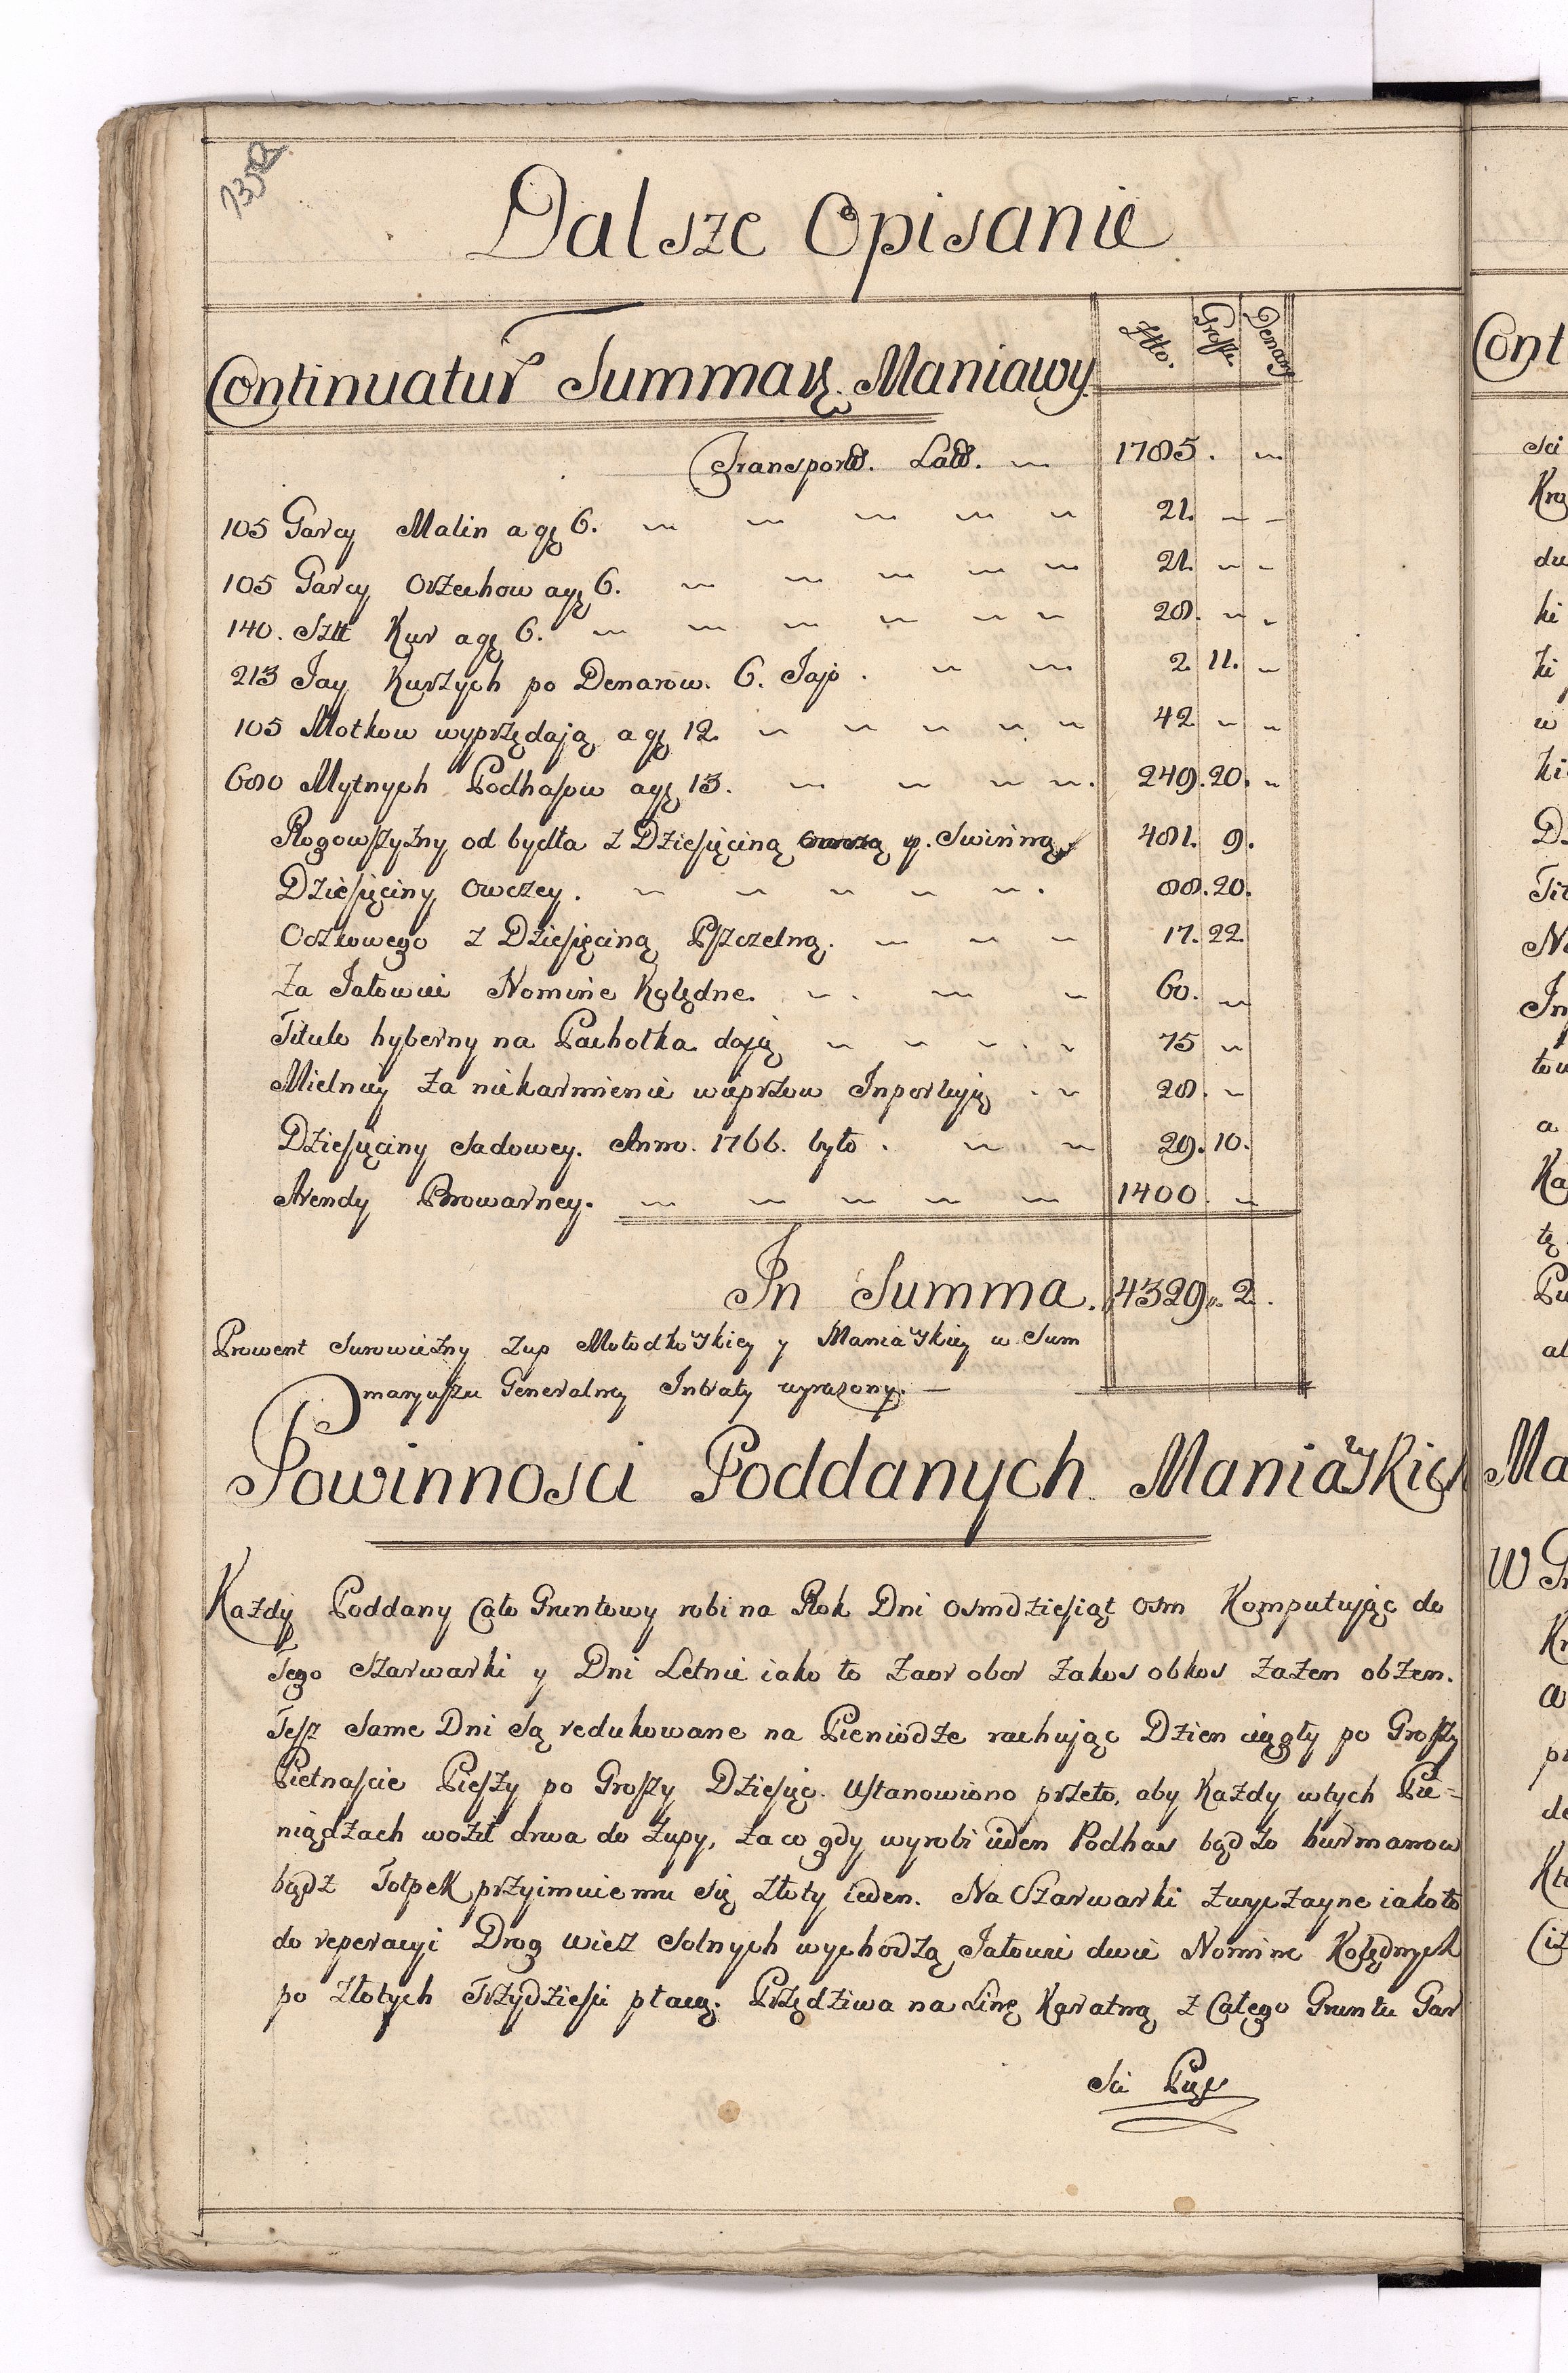 135
Dalsze Opisanie
Continuatur Summarz Maniawy.
Złło. Grosze Denary
Transport Lat. 1785.
105 Garcy Malin a gr 6. 21.
105 Garcy Orzechow a gr 6. 21.
140. Sztt Kur a gr 6. 28.
213 Jay Kurzych po Denarow. 6. Jajo. 2 11.
105 Motkow wyprzędają a gr 12. 42
680 Mytnych Podhasow a gr 13. 249. 20.
Rogowszyzny od bydła z Dziesięciną y. Swinną 481. 9.
Dziesięciny Owczey. 88. 20.
Oczkowego z Dziesięciną Pszczelną. 17. 22
Za Jałowic Nomine Kolędne. 60.
Titulo hyberny na Pachołka dają 75
Mielnicy za niekarmienie wieprzow Inportują 28.
Dziesięciny Sadowey. Anno. 1766. było. 29. 10.
Arendy Browarney. 1400
In Summa. 4329. 2.
Prowent Surowiczny Zup Mołodkoskiey y Maniaskiey w Sum
maryuszu Generalney Intraty wyrazony.
Powinnosci Poddanych Maniaskich
Kazdy Poddany Cało Gruntowy robi na Rok Dni Osmdziesiąt osm Komputując do
Tego Szarwarki y Dni Letnie iako to zaor obor zakos obkos zazen obzen.
Tesz same Dni są redukowane na Pieniądze rachując Dzien ciągły po Groszy
Pietnascie Pieszy po Groszy Dziesięc. Ustanowiono przeto, aby Kazdy w tych Pie-
niądzach woził drwa do Zupy, za co gdy wyrobi ieden Podhas bądz o hurmanow
bądz Tołpek przyimuie mu się złoty ieden. Na Szarwarki zwyczayne iako to
do reperacyi Drog wiez solnych wychodzą Jałowic dwie Nomine Kolędnych
po Złotych Trzydziesci płacą. Przędziwa na Linę Karatną z Całego Gruntu Gar
sci Pięc